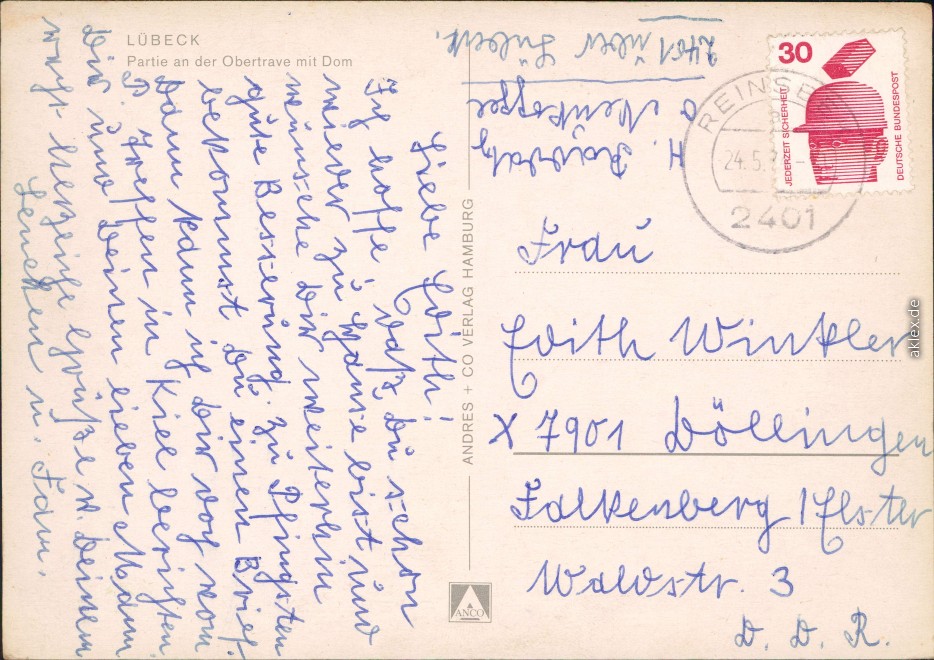 LÜBECK
Partie an der Obertrave mit Dom
Liebe Edith!
Ich hoffe daß Du schon
wieder zu Hause bist und
wünsche Dir weiterhin
gute Besserung. Zu Pfingsten
bekommst Du einen Brief.
Dann kann ich Dir vom
Treffen in Kiel berichten.
Dir und Deinen lieben Mann
herzliche Grüße v. Deinem
Lenchen u. Fam.
ANDRES + CO VERLAG HAMBURG
ANCO
H.
2401 über Lübeck.
30
JEDERZEIT SICHERHEIT
DEUTSCHE BUNDESPOST
24.5.
2401
Frau
Edith Winkler
X 7901 Döllingen
Falkenberg / Elster
Waldstr. 3
D. D. R.
aklex.de